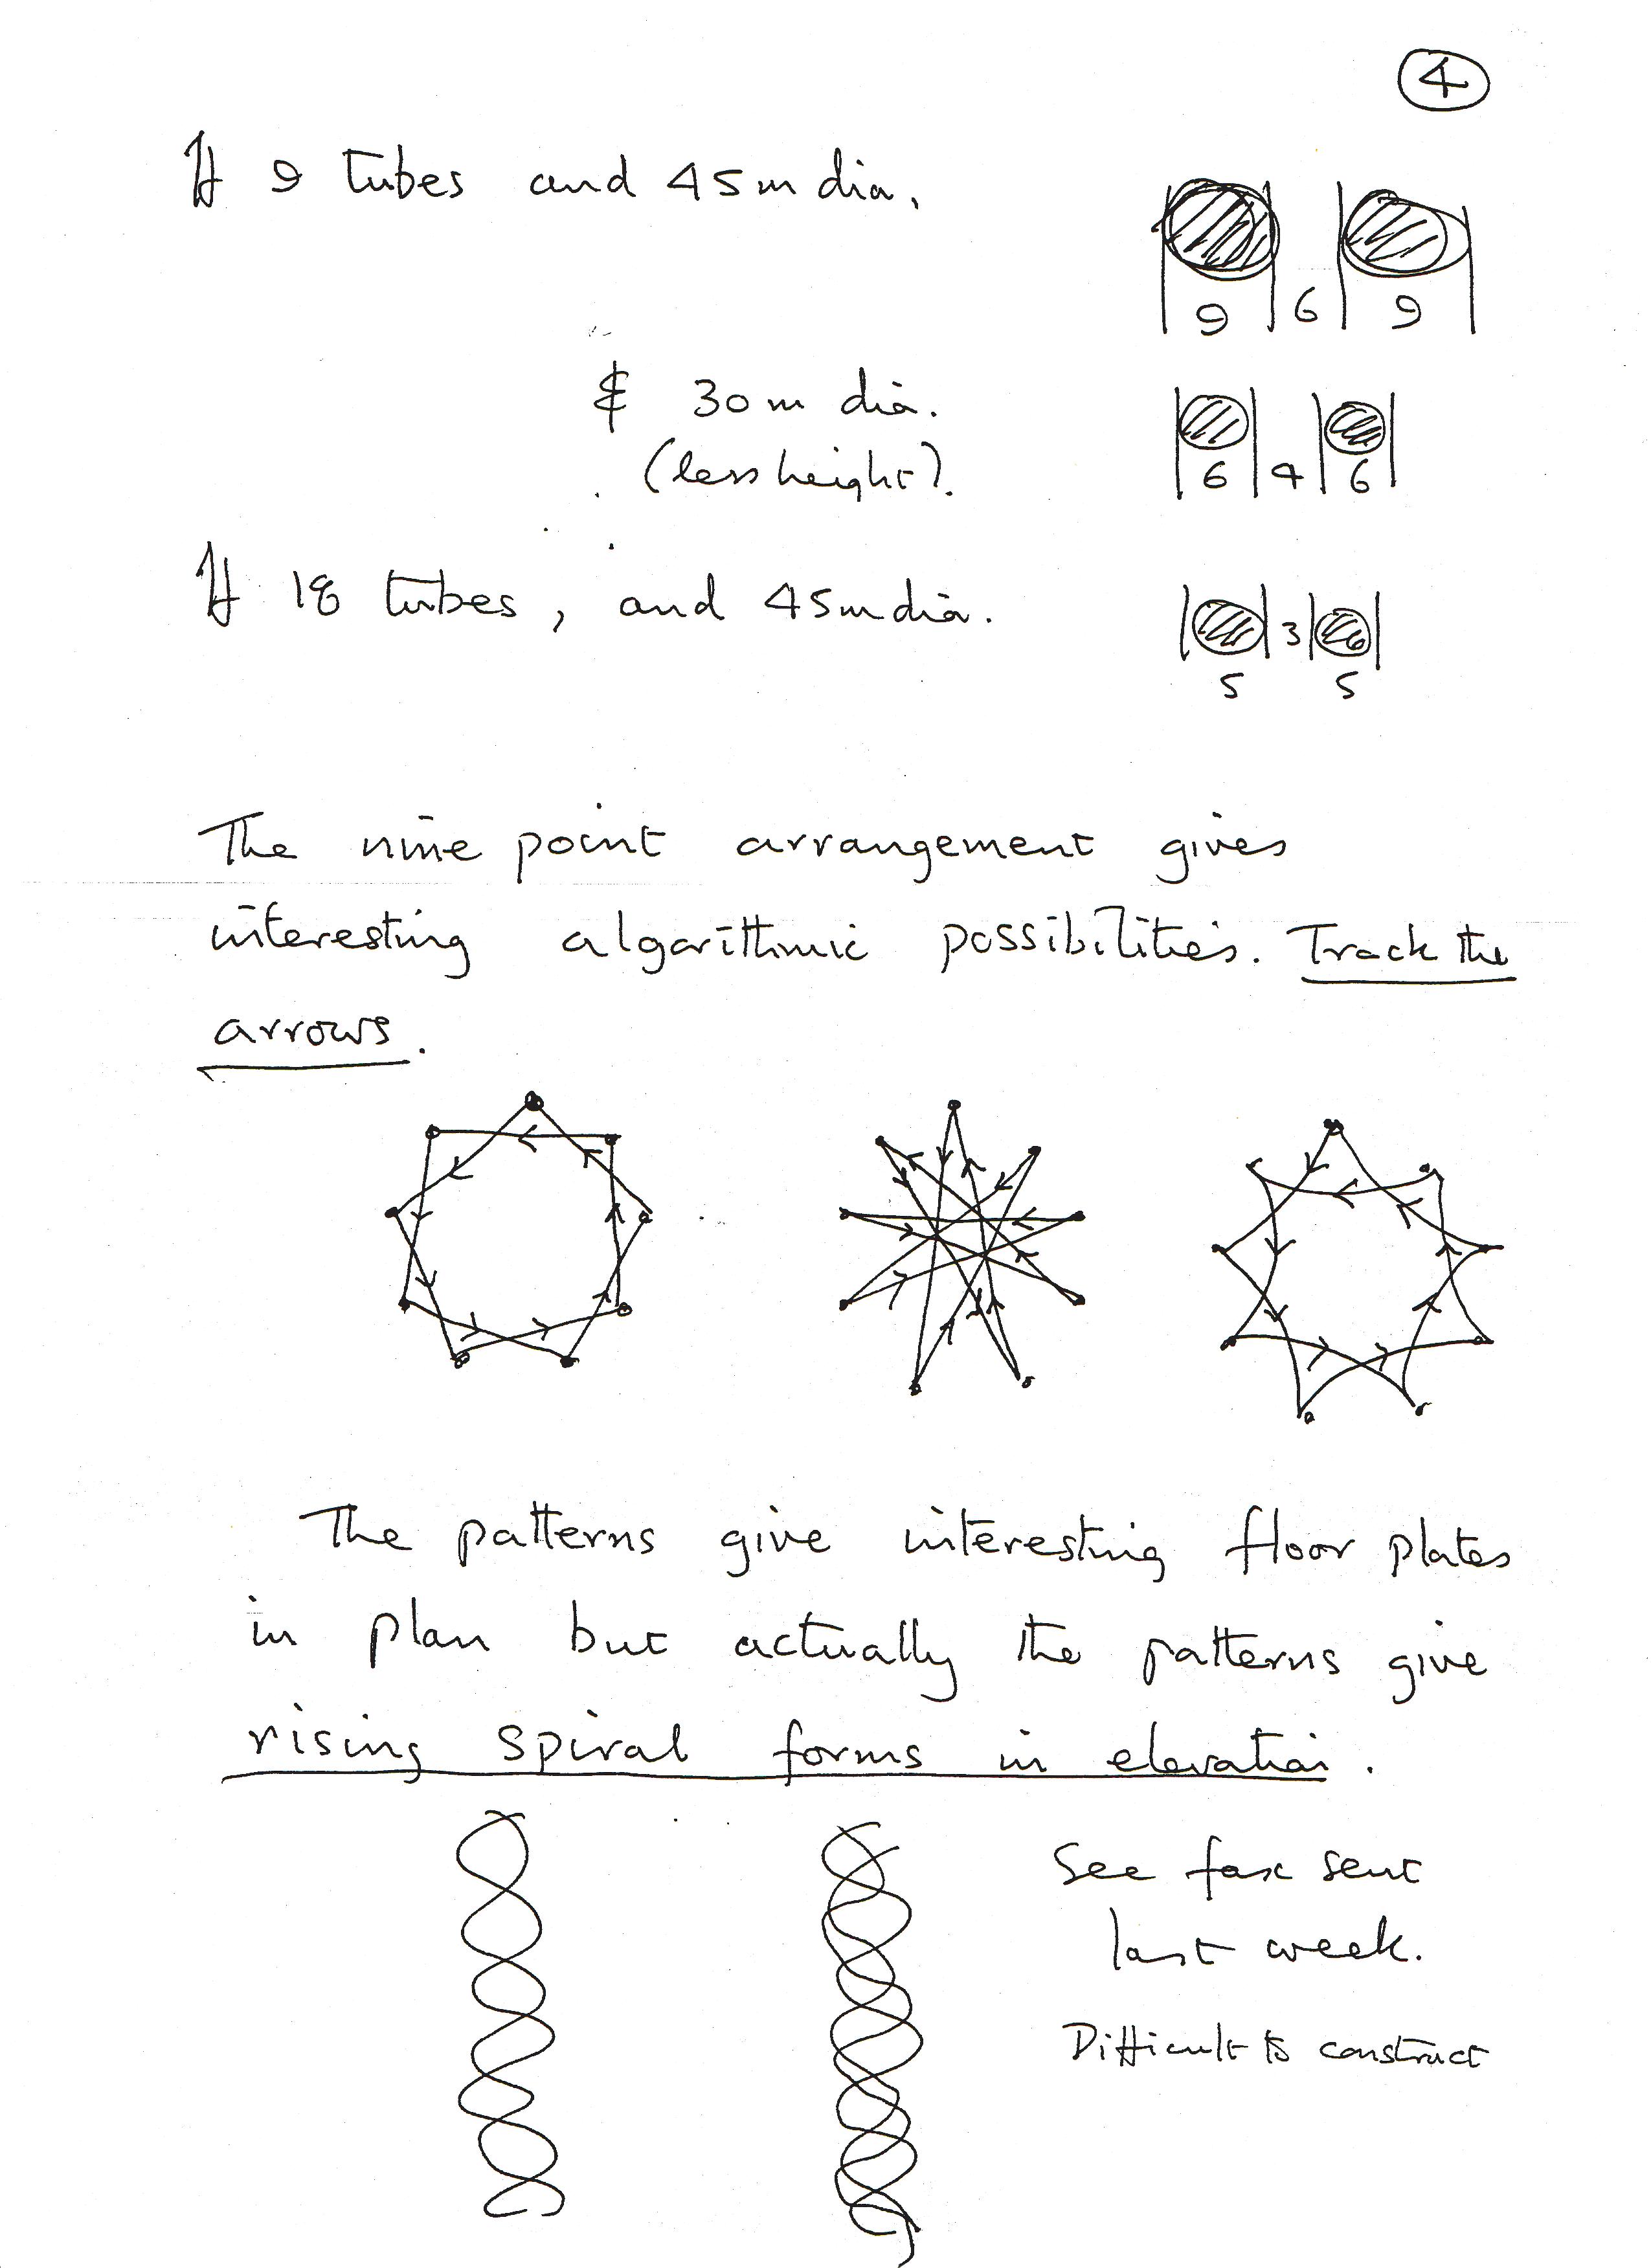 4
If 9 tubes and 45m dia.
9 6 9
& 30m dia.
(less height?)
6 4 6
If 18 tubes, and 45m dia.
3
5 5
The nine point arrangement gives
interesting algorithmic possibilities. Track the
arrows.
The patterns give interesting floor plates
in plan but actually the patterns give
rising spiral forms in elevation.
See fax sent
last week.
Difficult to construct